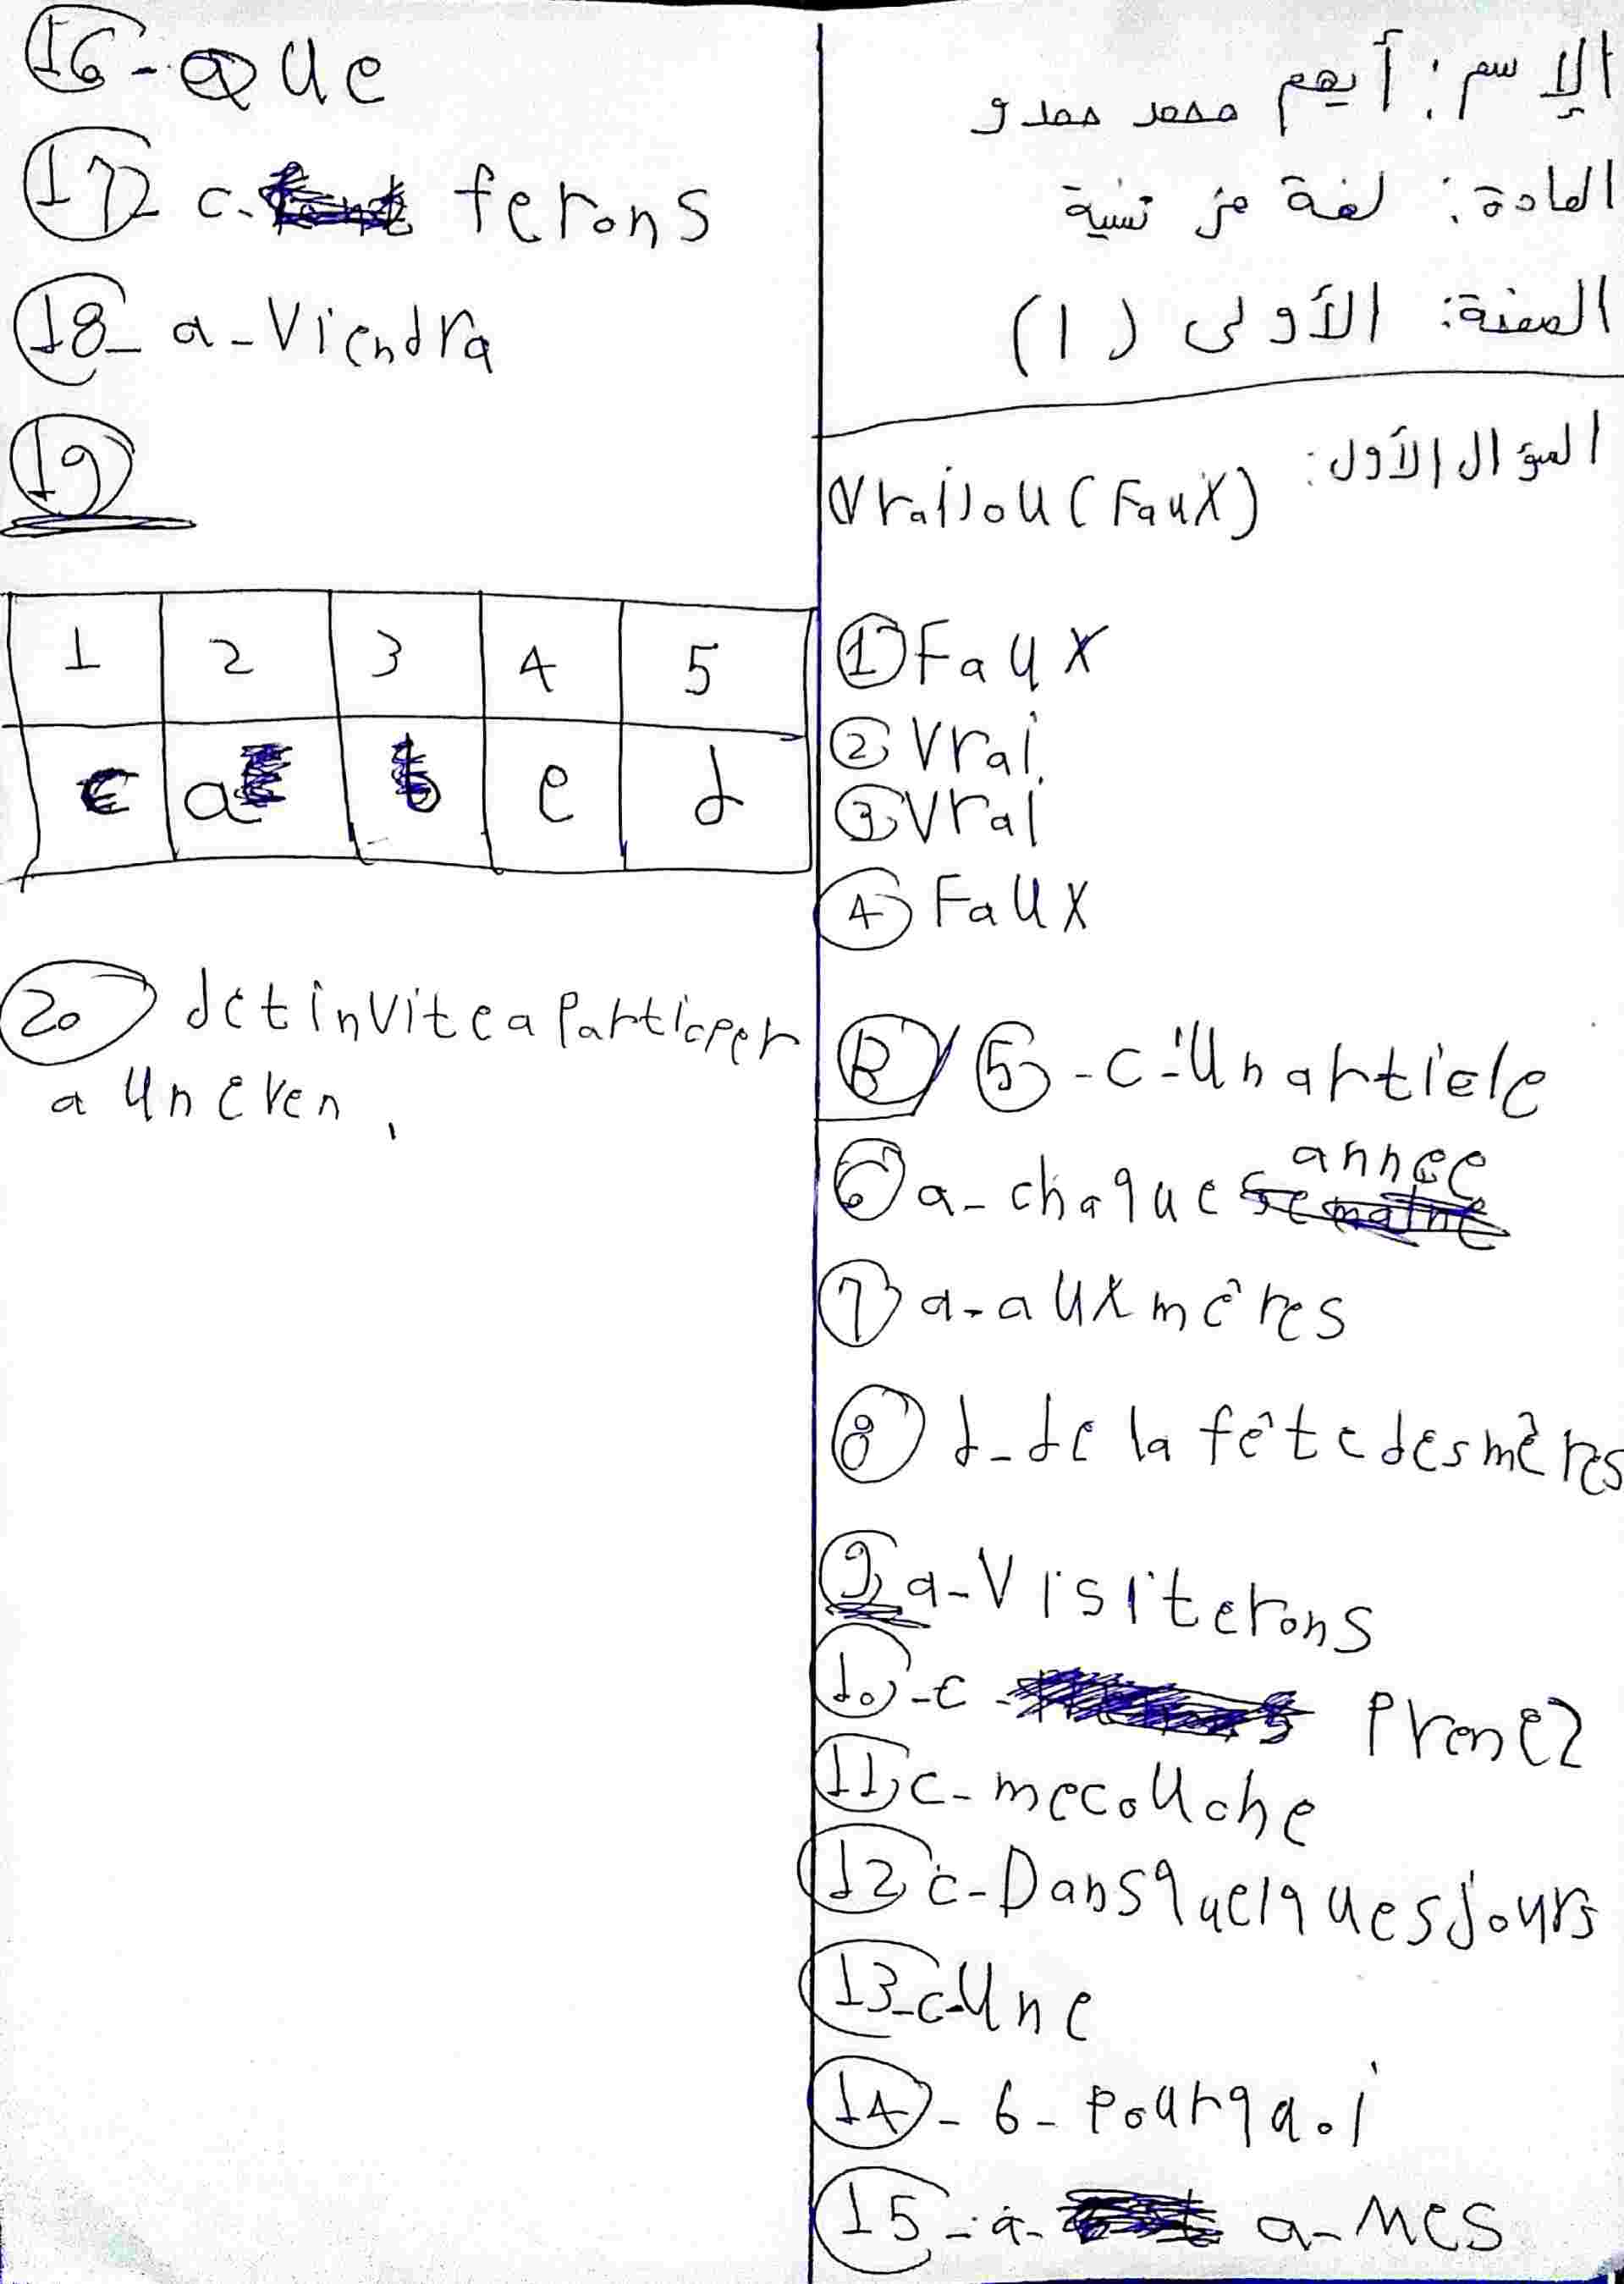 الإسم: أيهم محمد حمدو
المادة: لغة فرنسية
الصفحة: الأولى (١)
السؤال الأول:
(Vrai) ou (Faux)
① Faux
② Vrai
③ Vrai
④ Faux
B/ ⑤ - c - Un article
⑥ a - chaque année
⑦ a - aux mères
⑧ d - de la fête des mères
⑨ a - Visiterons
⑩ - c - Prenez
⑪ c - me couche
⑫ c - Dans quelques jours
⑬ - c - Une
⑭ - b - Pourquoi
⑮ - a - a - Mes
⑯ - a Que
⑰ - c - ferons
⑱ - a - Viendra
⑲
1 2 3 4 5
c a b e d
⑳ det invite a Particper
a un even.